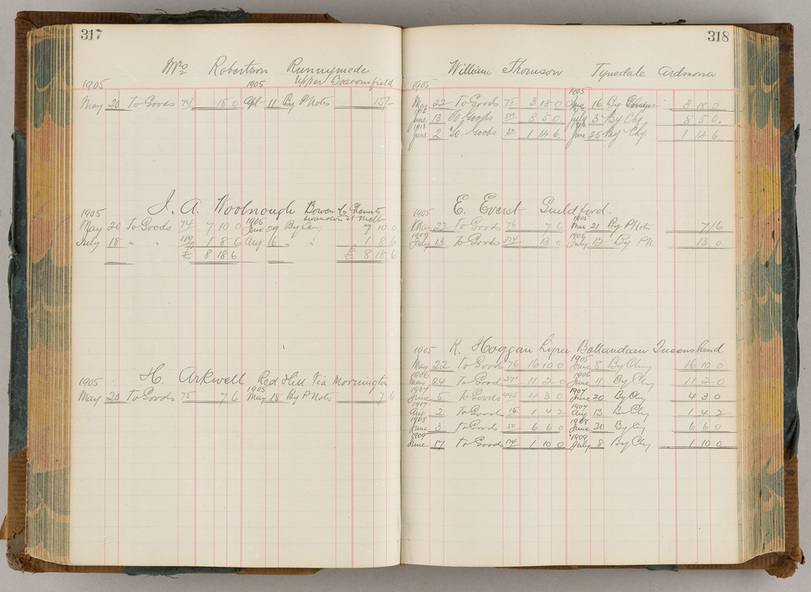 317
Mrs Robertson Runnymede
Upper Beaconsfield
1905 1905
May 20 To Goods 74 15 0 Apl 11 By P Notes 15/-
1905 J. A. Woolnough Bowen &
May 20 To Goods 74 7 10 0 1905 June 29 By Chq 7 10 0
July 18 " " 1 8 6 Aug 6 " " 1 8 6
£ 8 18 6 £ 8 18 6
1905 H. Arkwell Red Hill Via Mornington
May 20 To Goods 75 7 6 1905 May 18 By P Notes 7 6
318
William Thomson Tynedale Ardmona
1905 1905
May 22 To Goods 75 3 18 0 June 16 By 3 18 0
June 13 To Goods 8 5 0 July 3 By Chq 8 5 0
June 2 To Goods 1 14 6 June 25 By Chq 1 14 6
1905 E. Everet Guildford
May 22 To Goods 76 7 6 1905 Mar 21 By P Note 7/6
1909 July 13 To Goods 13 0 July 12 By P.N. 13 0
1905 K. Hoggan Lyra Ballandean Queensland
May 22 To Goods 76 16 10 0 1905 June 8 By Chq 16 10 0
1906 May 24 To Goods 11 2 0 1906 June 11 By Chq 11 2 0
1907 June 5 To Goods 4 3 0 1907 June 20 By Chq 4 3 0
1907 Aug 2 To Goods 15 1 4 2 1907 Aug 13 By Chq 1 4 2
1908 June 3 To Goods 6 6 0 1908 June 30 By Chq 6 6 0
1909 June 17 To Goods 1 10 0 1909 July 8 By Chq 1 10 0